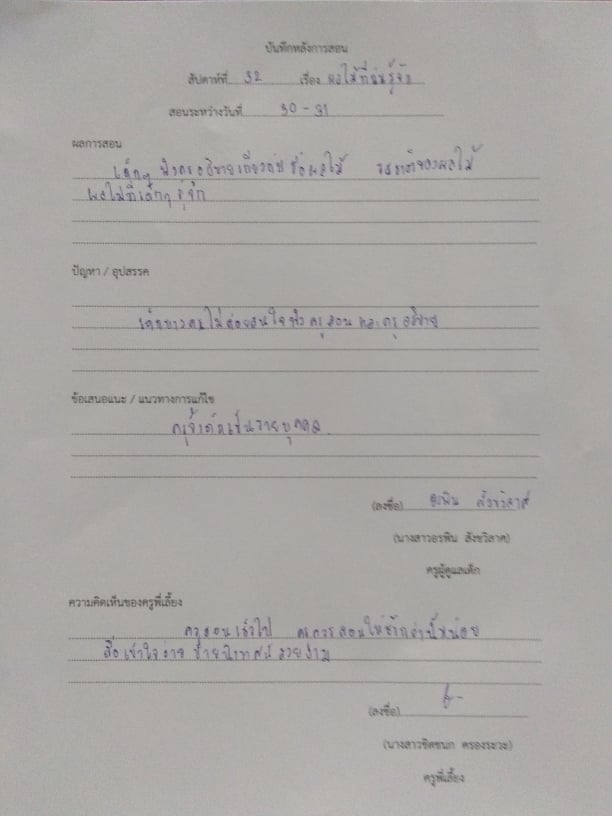 บันทึกหลังการสอน
สัปดาห์ที่ 32 เรื่อง ผลไม้ที่ฉันรู้จัก
สอนระหว่างวันที่ 30 - 31
ผลการสอน
เด็กๆ ฟังครูอธิบายเกี่ยวกับ ชื่อผลไม้ รสชาติของผลไม้
ผลไม้ที่เด็กๆ รู้จัก
ปัญหา / อุปสรรค
เด็กบางคนไม่ค่อยสนใจฟังครูสอน และครูอธิบาย
ข้อเสนอแนะ / แนวทางการแก้ไข
เด็กเป็นรายบุคคล
(ลงชื่อ) อรพิน สังขวิลาศ
(นางสาวอรพิน สังขวิลาศ)
ครูผู้ดูแลเด็ก
ความคิดเห็นของครูพี่เลี้ยง
ครูสอนเร็วไป ควรสอนให้ช้ากว่านี้หน่อย
สื่อเข้าใจง่าย ป้ายนิเทศน์สวยงาม
(ลงชื่อ)
(นางสาวชิดชนก ครองระวะ)
ครูพี่เลี้ยง